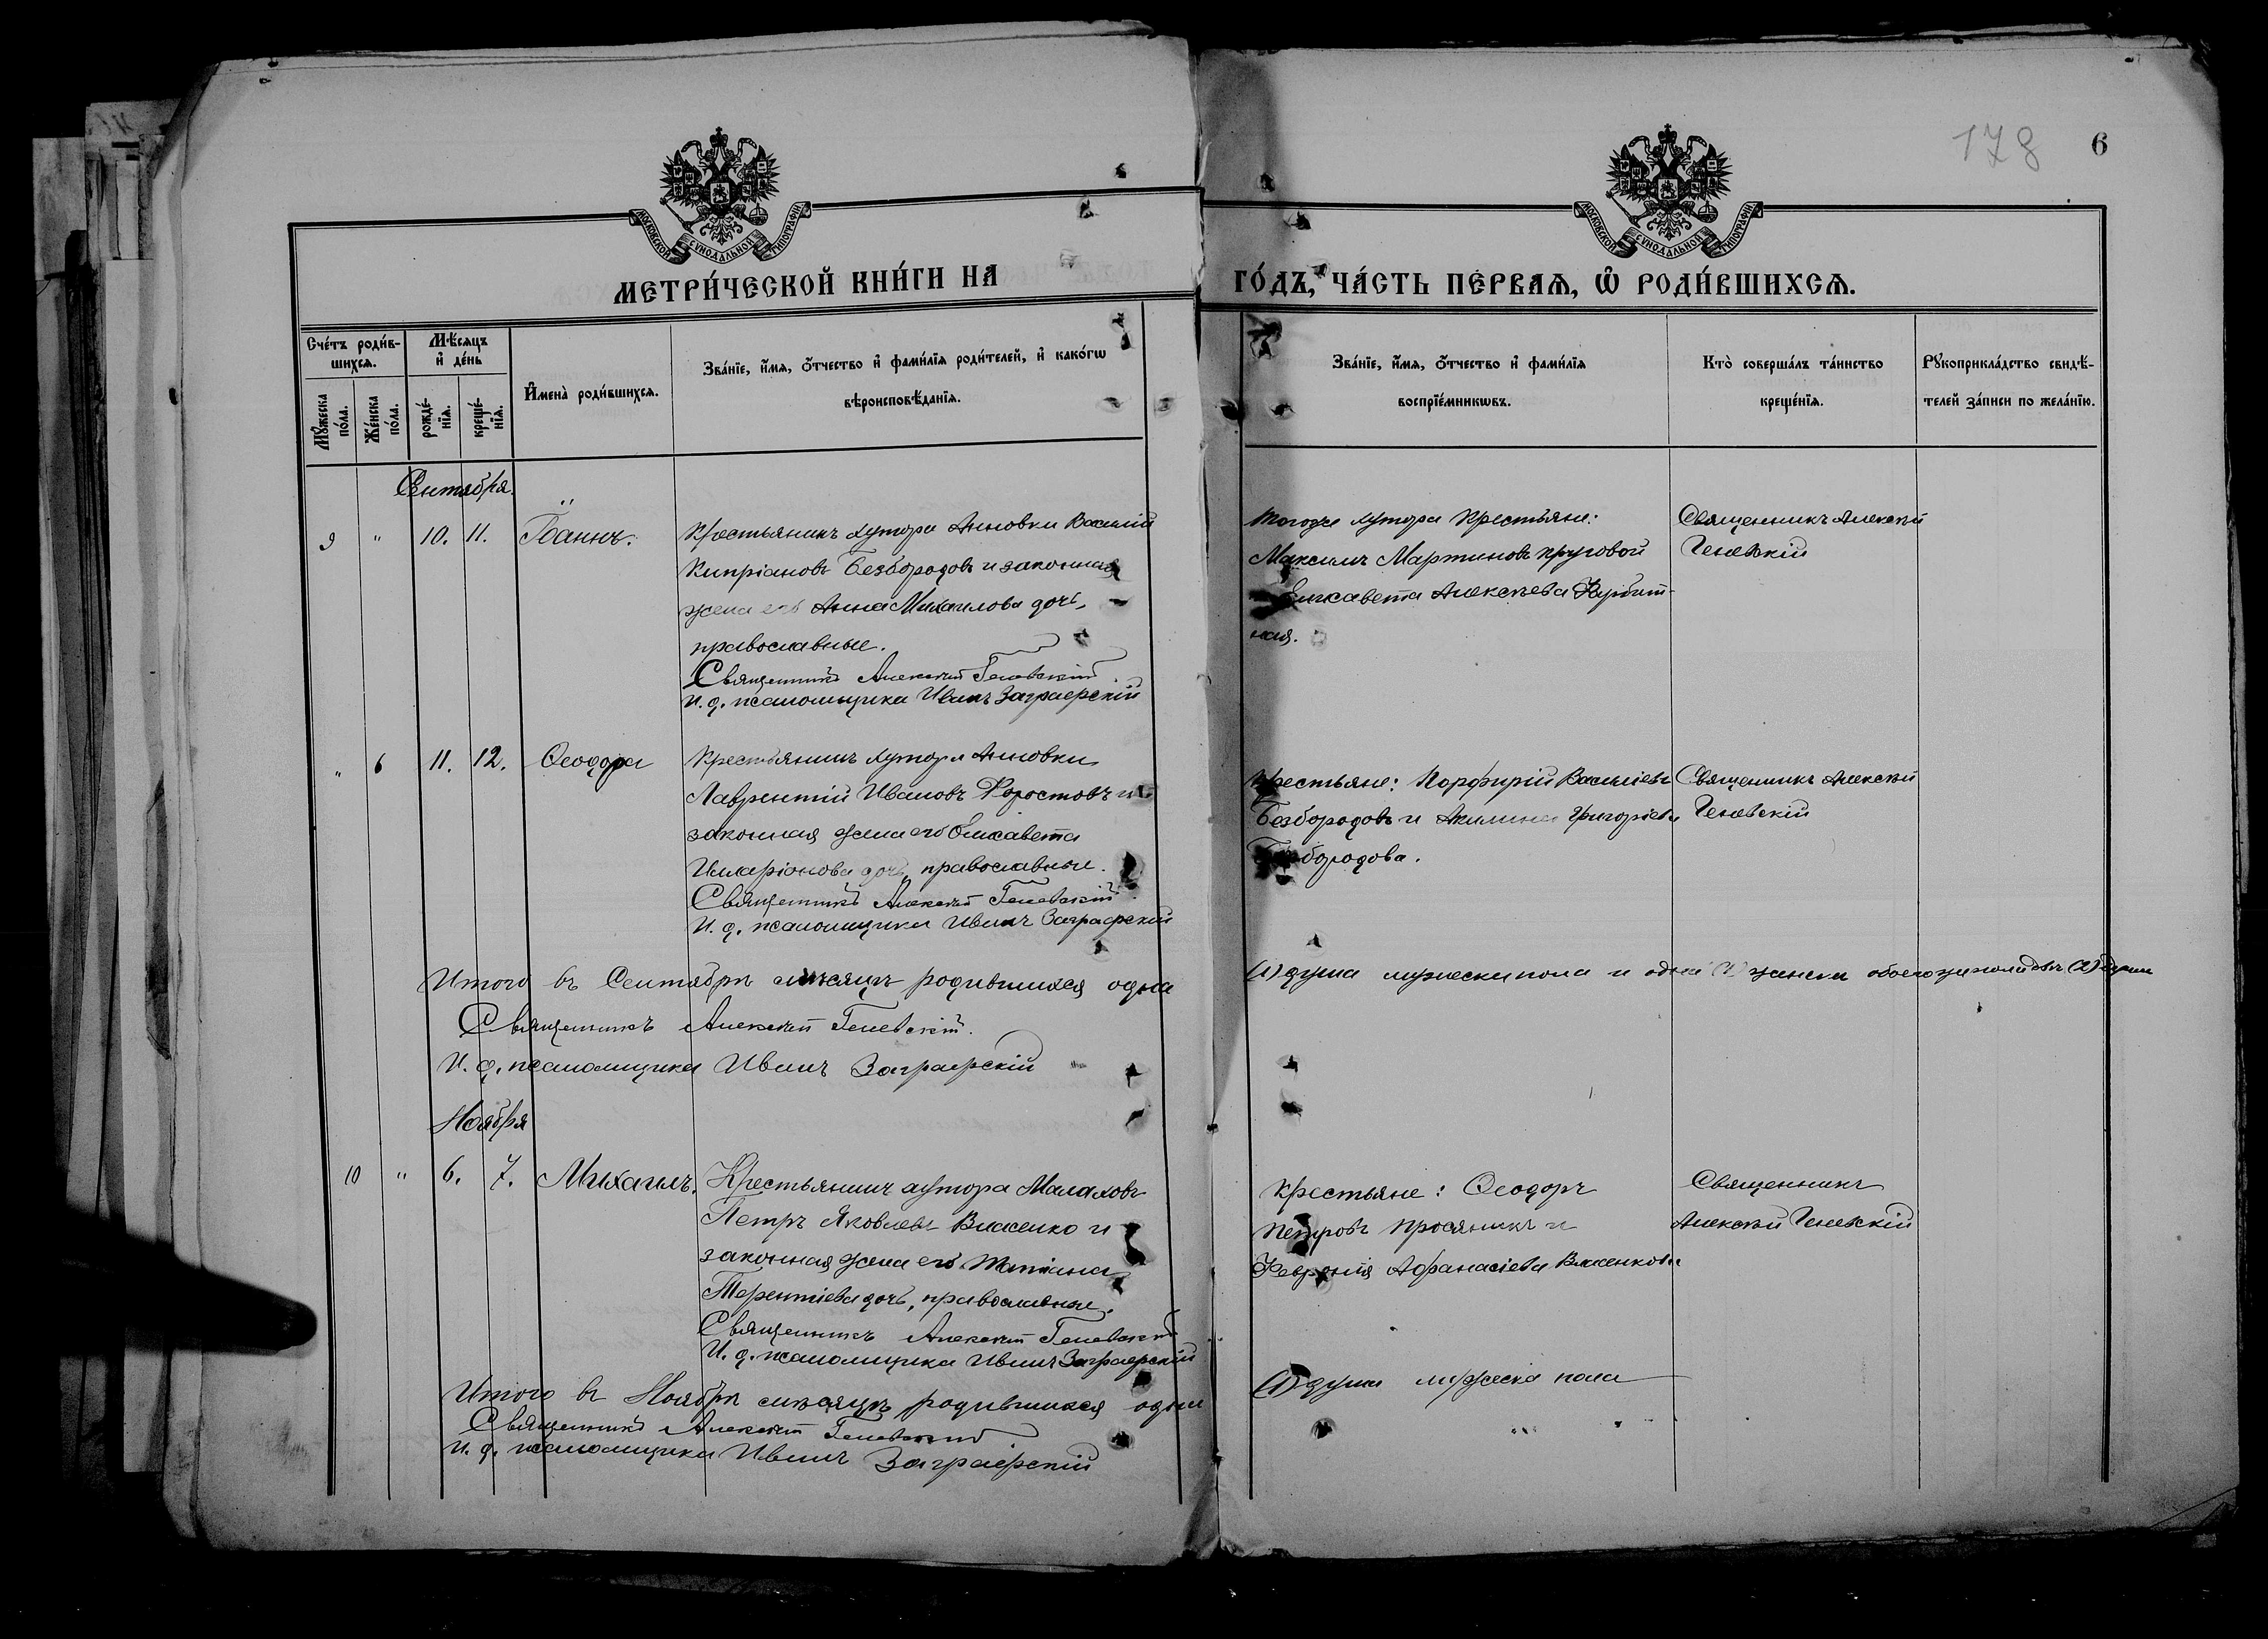 178 6
МОСКОВСКОЙ СУНОДАЛЬНОЙ ТИПОГРАФІИ
МОСКОВСКОЙ СУНОДАЛЬНОЙ ТИПОГРАФІИ
МЕТРИ́ЧЕСКОЙ КНИ́ГИ НА
ГО́ДЪ, ЧА́СТЬ ПЕ́РВАѦ, Ѡ РОДИ́ВШИХСѦ.
Сче́тъ роди́в-
шихсѧ.
Мꙋ́жеска по́ла.
Же́нска по́ла.
Мѣ́сяцъ
и҆ де́нь
рожде́-
нїѧ.
креще́-
нїѧ.
И҆мена̀ роди́вшихсѧ.
Зва́нїе, и҆́мѧ, ѻ҆́тчество и҆ фами́лїѧ роди́телей, и҆ како́гѡ
вѣроисповѣ́данїѧ.
Зва́нїе, и҆́мѧ, ѻ҆́тчество и҆ фами́лїѧ
воспрїе́мникѡвъ.
Кто̀ соверша́лъ та́инство
креще́нїѧ.
Рꙋкоприкла́дство свидѣ́-
телей за́писи по жела́нїю.
Сентября.
9 " 10. 11. Іоаннъ.
Крестьянинъ хутора Анновки Василій
Кипріановъ Безбородовъ и законная
жена его Анна Михаилова дочь,
православные.
Священникъ Алексѣй Геневскій
И. д. псаломщика Иванъ Заграфскій
Тогоже хутора крестьяне:
Максимъ Мартиновъ Круговой
Елисавета Алексѣева
ная.
Священникъ Алексѣй
Геневскій
" 6 11. 12. Ѳеодора
Крестьянинъ хутора Анновки
Лаврентій Ивановъ Форостовъ и
законная жена его Елисавета
Иларіонова дочь, православные.
Священникъ Алексѣй Геневскій
И. д. псаломщика Иванъ Заграфскій
Крестьяне: Порфирій Васильевъ
Безбородовъ и Акилина Григоріева
Безбородова.
Священникъ Алексѣй
Геневскій
Итого въ Сентябрѣ мѣсяцѣ родившихся одна
(1) душа мужеска пола и одна (1) женска обоего же пола двѣ (2) души
Священникъ Алексѣй Геневскій.
И. д. псаломщика Иванъ Заграфскій
Ноября
10 " 6. 7. Михаилъ.
Крестьянинъ хутора Малаховъ
Петръ Яковлевъ Власенко и
законная жена его Татіана
Терентіева дочь, православные.
Священникъ Алексѣй Геневскій
И. д. псаломщика Иванъ Заграфскій
Крестьяне: Ѳеодоръ
Петровъ Просяникъ и
Февронія Афанасіева Власенкова
Священникъ
Алексѣй Геневскій
Итого въ Ноябрѣ мѣсяцѣ родившихся одна
(1) душа мужеска пола
Священникъ Алексѣй Геневскій
И. д. псаломщика Иванъ Заграфскій